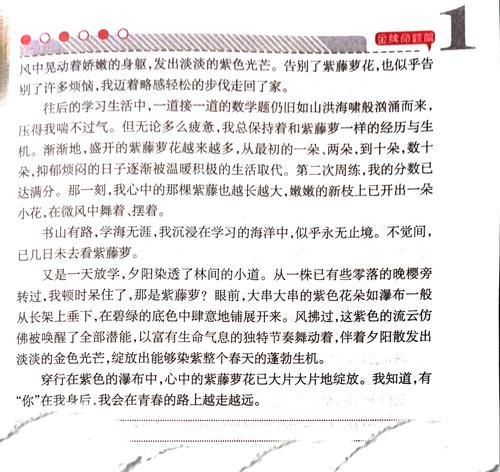 金牌命题篇
1
风中晃动着娇嫩的身躯，发出淡淡的紫色光芒。告别了紫藤萝花，也似乎告
别了许多烦恼，我迈着略感轻松的步伐走回了家。
往后的学习生活中，一道接一道的数学题仍旧如山洪海啸般汹涌而来，
压得我喘不过气。但无论多么疲惫，我总保持着和紫藤萝一样的经历与生
机。渐渐地，盛开的紫藤萝花越来越多，从最初的一朵、两朵，到十朵，数十
朵，抑郁烦闷的日子逐渐被温暖积极的生活取代。第二次周练，我的分数已
达满分。那一刻，我心中的那棵紫藤也越长越大，嫩嫩的新枝上已开出一朵
小花，在微风中舞着、摆着。
书山有路，学海无涯，我沉浸在学习的海洋中，似乎永无止境。不觉间，
已几日未去看紫藤萝。
又是一天放学，夕阳染透了林间的小道。从一株已有些零落的晚樱旁
转过，我顿时呆住了，那是紫藤萝？眼前，大串大串的紫色花朵如瀑布一般
从长架上垂下，在碧绿的底色中肆意地铺展开来。风拂过，这紫色的流云仿
佛被唤醒了全部潜能，以富有生命气息的独特节奏舞动着，伴着夕阳散发出
淡淡的金色光芒，绽放出能够染紫整个春天的蓬勃生机。
穿行在紫色的瀑布中，心中的紫藤萝花已大片大片地绽放。我知道，有
“你”在我身后，我会在青春的路上越走越远。